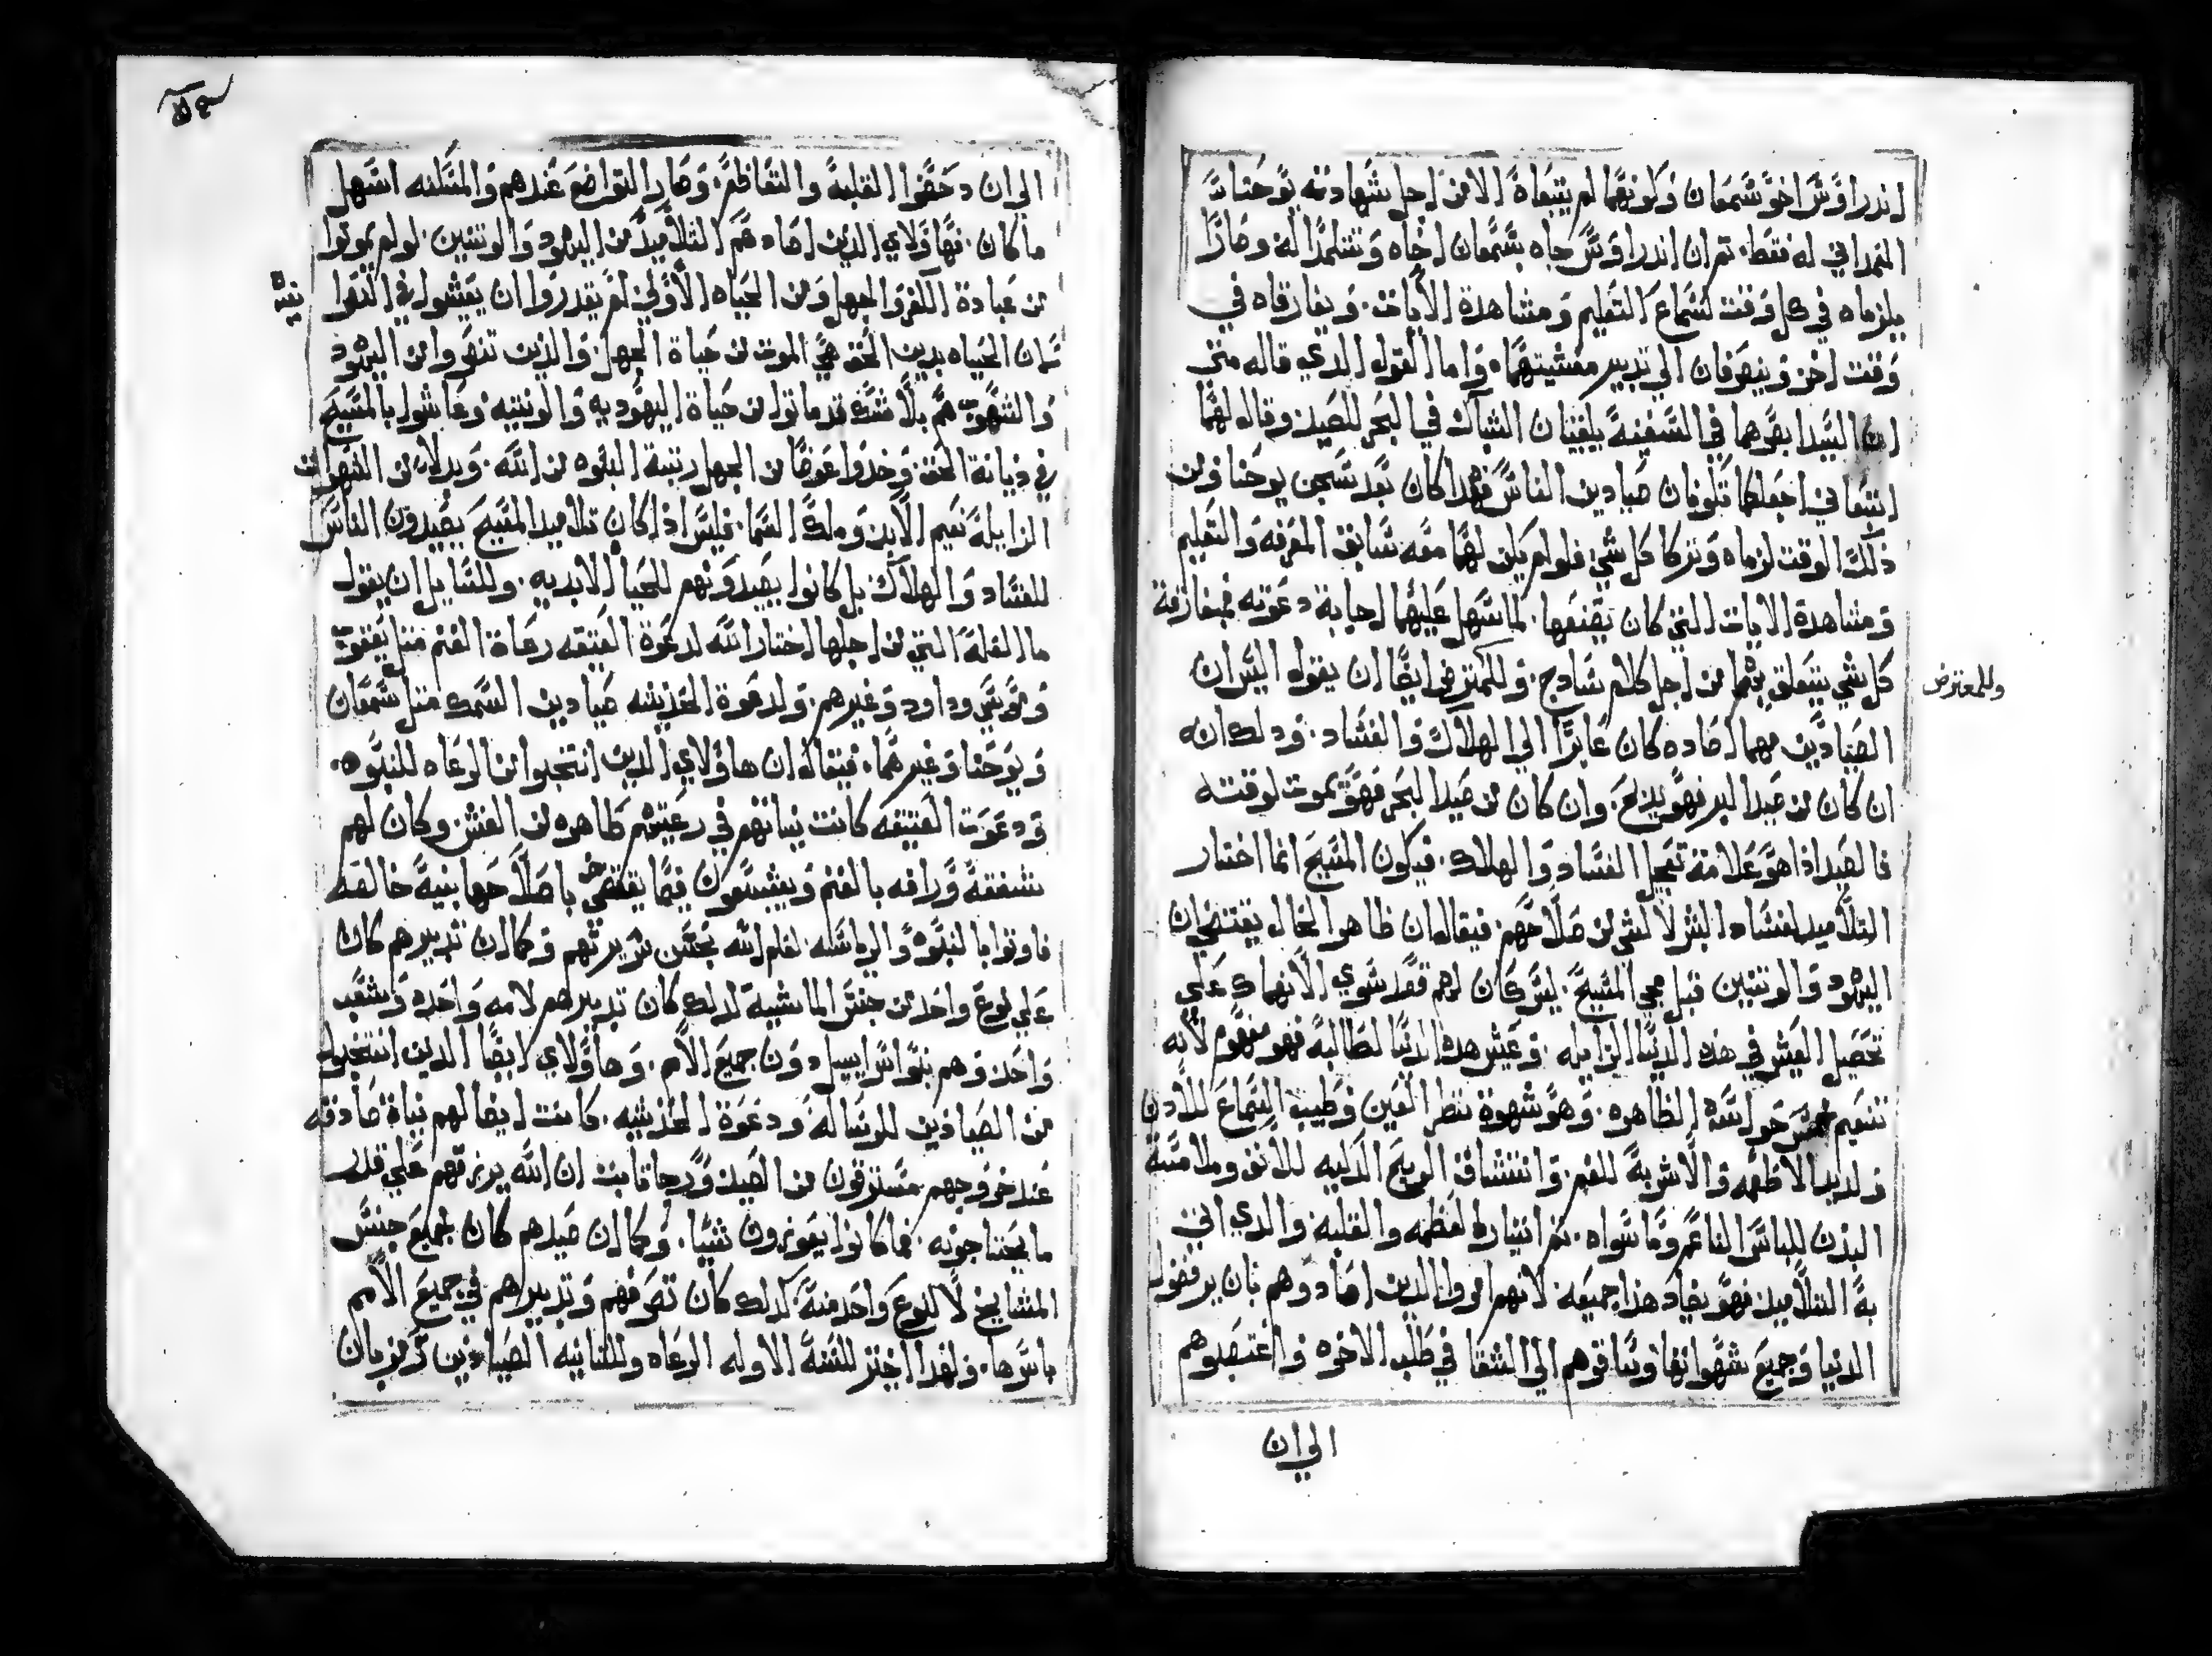 اندراوس اخو شمعان وكونهما لم يتبعاه الا من اجل شهادته يوحنا
المعمداني له فقط. تم ان اندراوس جاه بشمعان اخاه وتتلمدا له وصارا
يلزماه في كل وقت لسماع التعليم ومشاهدة الايات. ويفارقاه في
وقت اخر وينصرفان الي تدبير معيشتهما. واما القول الدي قاله متي
ان السيد ابصرهما في السفينة يلقيان الشباك في البحر للصيد وقال لهما
اتبعاني اجعلكما تكونان صيادين الناس فهدا كان بعد سجن يوحنا ومن
ذلك الوقت لزماه وتركا كل شي فلو لم يكن لهما معه سابق المعرفه والتعليم
ومشاهدة الايات التي كان يصنعها. لما سهل عليهما اجابة دعوته بمفارقة
كل شي يتعلق بهما من اجل كلام سادج. وللمعترض ايضا ان يقول اليس ان
وللمعترض
الصيادين مهما صاده كان عابرا الي الهلاك والفساد. ودلك انه
ان كان من صيد البر فهو يدبح. وان كان من صيد البحر فهو يموت لوقته
فالصيد اذا هو علامة تعجل الفساد والهلاك. فيكون المسيح انما اختار
التلاميد لفساد البشر لا لشي من صلاحهم. فيقال ان ظاهر الحال يقتضي ان
اليهود والوتنيين قبل مجي المسيح. ليس كان لهم قصد سوي الانهماك علي
تحصيل العيش في هذه الدنيا الزايله. وعيش هده الدنيا لطالبه فهو مفهوم لانه
تنعيم خمس حواسه الظاهره. وهو شهوة نظر العين وطيب السماع للادن
ولديد الاطعمه والاشربه للفم. وانتشاق الريح الدكيه للانف وملامسة
البدن للباس الناعم وما سواه. تم ايتار العظمه والغلبه والدي اتي
به التلاميد فهو يضاد هذا جميعه. لانهم امروا الدين اصادوهم بان يرفضوا
الدنيا وجميع شهواتها وساقوهم الي الشقا في طلب الاخره واغتصبوهم
الي ان
الي ان دحضوا الغلبة والتعاظم. وصار التواضع عندهم والمسكنه اسهل
ما كان. فهاولاي الدين اصادهم التلاميد من اليهود والوتنيين. لو لم يموتوا
من عبادة الكفر والجهل ومن الحياه الاولي لم يقدروا ان يعيشوا في التقوا
لان الحياه بدين الحق هي الموت من حياة الجهل. والذين تنصروا من اليهود
والشعوب هم بلا شك قد ماتوا من حياة اليهوديه والوتنيه وعاشوا بالمسيح
في ديانة الحق. وخدوا عوضا من الجهل رتبة البنوه من الله. وبدلا من الشهوات
الزايلة نعيم الابد وملك السما. فليس اذا كان تلاميد المسيح يصيدون الناس
للفساد والهلاك بل كانوا يصيدونهم للحيا الابديه. وللسايل ان يقول
ما العلة التي من اجلها اختار الله لدعوة العتيقه رعاة الغنم متل يعقوب
وموسي وداود وغيرهم. ولدعوة الحديثه صيادين السمك متل شمعان
ويوحنا وغيرهما. فيقال ان هاولاي الدين انتخبوا من الرعاه للنبوه.
ودعوت العتيقه كانت نياتهم في رعيتهم طاهره من الغش وكان لهم
شفقة ورافه بالغنم ويشيعون فيما يقتضي باصلاحها بنية خالصه
فاوتوا بالنبوه والرساله. لعلم الله بحسن سريرتهم وكما ان تدبيرهم كان
علي نوع واحد من جنس الماشية كدلك كان تدبيرهم لامه واحده وشعب
واحد وهم بنو اسراييل دون جميع الامم. وهاولاي ايضا الدين انتخبوا
من الصيادين للرساله ودعوة الحديثه. كانت ايضا لهم نياة صادقه
عند خروجهم مسترزقون من الصيد ورجا تابت ان الله يرزقهم علي قدر
ما يحتاجونه. فما كانوا يعوزون شيا. وكما ان صيدهم كان لجميع جنس
لا لنوع واحد منه كدلك كان تصرفهم وتدبيرهم في جميع الامم
باسرها. ولهدا اختير للسنة الاوله الرعاه وللتانيه الصيادين